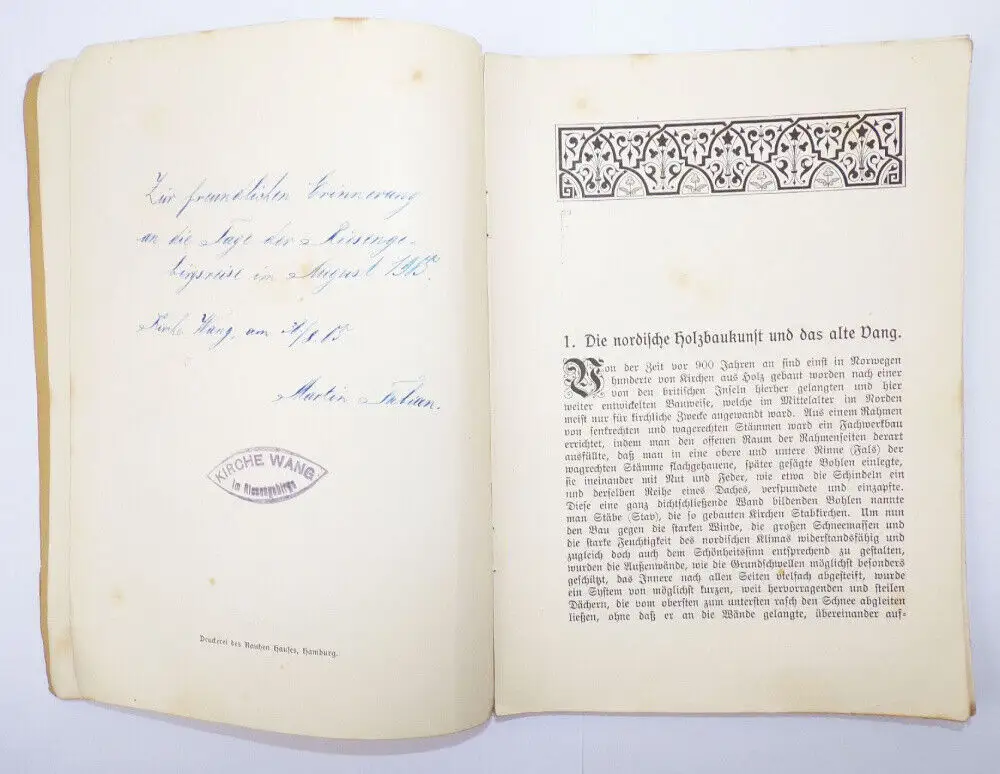 Zur freundlichen Erinnerung
an die Tage der Riesenge-
birgsreise im August
Kirche Wang, am
Martin
KIRCHE WANG
im Riesengebirge
Druckerei des Rauhen Hauses, Hamburg.
1. Die nordische Holzbaukunst und das alte Vang.
Von der Zeit vor 900 Jahren an sind einst in Norwegen
Hunderte von Kirchen aus Holz gebaut worden nach einer
von den britischen Inseln hierher gelangten und hier
weiter entwickelten Bauweise, welche im Mittelalter im Norden
meist nur für kirchliche Zwecke angewandt ward. Aus einem Rahmen
von senkrechten und wagerechten Stämmen ward ein Fachwerkbau
errichtet, indem man den offenen Raum der Rahmenseiten derart
ausfüllte, daß man in eine obere und untere Rinne (Fals) der
wagrechten Stämme flachgehauene, später gesägte Bohlen einlegte,
sie ineinander mit Nut und Feder, wie etwa die Schindeln ein
und derselben Reihe eines Daches, verspundete und einzapfte.
Diese eine ganz dichtschließende Wand bildenden Bohlen nannte
man Stäbe (Stav), die so gebauten Kirchen Stabkirchen. Um nun
den Bau gegen die starken Winde, die großen Schneemassen und
die starke Feuchtigkeit des nordischen Klimas widerstandsfähig und
zugleich doch auch dem Schönheitssinn entsprechend zu gestalten,
wurden die Außenwände, wie die Grundschwellen möglichst besonders
geschützt, das Innere nach allen Seiten vielfach abgesteift, wurde
ein System von möglichst kurzen, weit hervorragenden und steilen
Dächern, die vom obersten zum untersten rasch den Schnee abgleiten
ließen, ohne daß er an die Wände gelangte, übereinander auf-